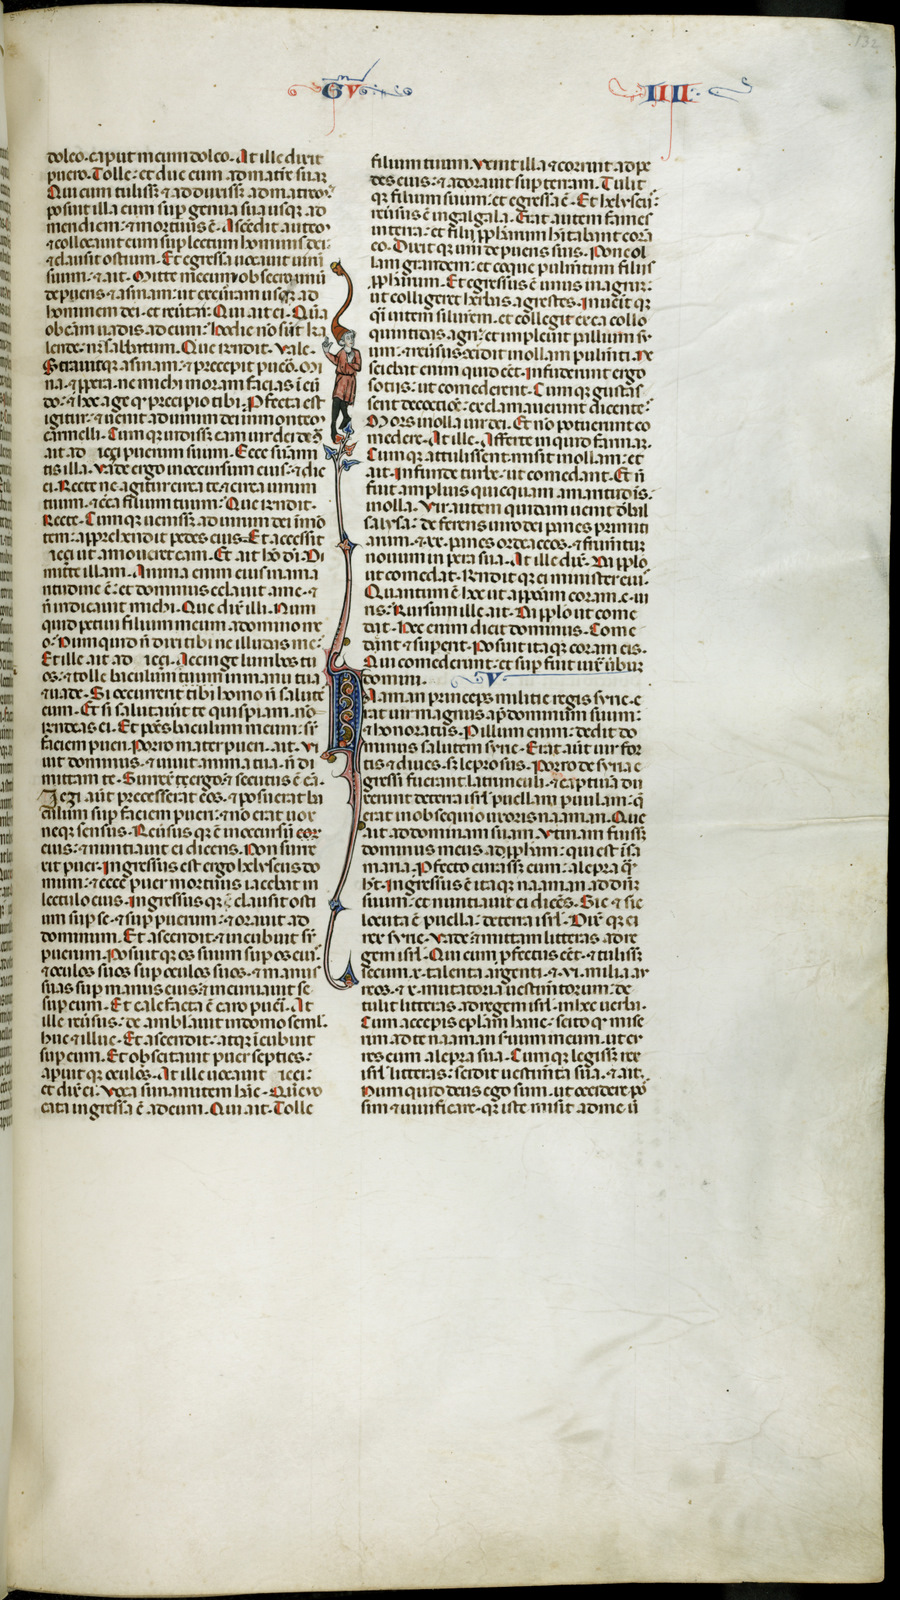 132
GV
IIII
doleo. caput meum doleo. At ille dixit
puero. Tolle: et duc eum ad matrē suā.
Qui cum tulissꝫ & adduxissꝫ ad matrē:
posuit illa eum sup genua sua usqꝫ ad
meridiem: & mortuus ē. Ascēdit autē
& collocauit eum sup lectum hominis dei:
& clausit ostium. Et egressa uocauit uirū
suum: & ait. Mitte mecum obsecro unū
de pueris & asinam: ut excurram usqꝫ ad
hominem dei. et reūtar. Qui ait ei. Quā
ob cām uadis ad eum: hodie nō sūt ka
lende. nꝫ sabbatum. Que rn̄dit. Vale.
Strauitqꝫ asinam: & precepit puero. Mi
na. & ppera. ne michi moram facias ī eū
do. & hoc age qd precipio tibi. Pfecta est
igitur. & uenit ad uirum dei in montē
carmeli. Cumqꝫ uidissꝫ eam uir dei de
ait ad iezi puerum suum. Ecce sunami
tis illa. Vade ergo in occursum eius. & dic
ei. Recte ne agitur circa te. & circa uirum
tuum. & circa filium tuum: Que rn̄dit.
Recte. Cumqꝫ uenissꝫ ad uirum dei in mō
tem: apprehendit pedes eius. Et accessit
iezi ut amoueret eam. Et ait hō dī. Di
mitte illam. Anima enim eius in ama
ritudine ē: et dominus celauit a me. &
n̄ indicauit michi. Que dix̄ illi. Num
quid petiui filium meum a domino me
o: Numquid n̄ dixi tibi ne illudas me:
Et ille ait ad iezi. Accinge lumbos tu
os: & tolle baculum tuum in manu tua
& uade. Si occurrerit tibi homo n̄ salute
eum. Et si salutauīt te quispiam. nō
rn̄deas ei. Et pōes baculum meum: sr̄
faciem pueri. Porro mater pueri. ait. Vi
uit dominus. & uiuit anima tua. n̄ di
mittam te. Surrexit ergo: & secutus ē eā.
Jezi aūt precesserat eos. & posuerat ba
culum sup faciem pueri: & nō erat uox
neqꝫ sensus. Reūsusqꝫ ē in occursū
eius: & nuntiauit ei dicens. Non surre
xit puer. Ingressus est ergo helyseus do
mum: & ecce puer mortuus iacebat in
lectulo eius. Ingressusqꝫ clausit osti
um sup se. & sup puerum: & orauit ad
dominum. Et ascendit. & incubuit sr̄
puerum. Posuitqꝫ os suum sup os eiuꝰ.
& oculos suos sup oculos suos. & manus
suas sup manus eius: & incuruauit se
sup eum. Et calefacta ē caro pueri. At
ille reūsus: deambulauit in domo semel.
huc & illuc. Et ascendit: atqꝫ īcubuit
sup eum. Et oscitauit puer septies:
apuitqꝫ oculos. At ille uocauit iezi:
et dix̄ ei. Voca sunamitem hanc. Que uo
cata ingressa ē ad eum. Qui ait. Tolle
filium tuum. Venit illa & corruit ad pe
des eius: & adorauit sup terram. Tulit
qꝫ filium suum: et egressa ē. Et helyseꝰ
reūsus ē in galgala. Erat autem fames
in terra: et filij pphārum hitabant corā
eo. Dixitqꝫ uni de pueris suis. Pone ol
lam grandem: et coque pulmtum filijs
pphārum. Et egressus ē unus in agrū:
ut colligeret herbas agrestes. Inuenitqꝫ
qī uitem siluestrem. et collegit ex ea collo
quintidas agri: et impleuit pallium su
um. & reūsus cōcidit in ollam pulmti. Ne
sciebat enim quid eēt. Infuderunt ergo
sociis: ut comederent. Cumqꝫ gustas
sent de coctiōe: exclamauerunt dicentes.
Mors in olla uir dei. Et nō potuerunt co
medere. At ille. Afferte inquid farinam.
Cumqꝫ attulissent. misit in ollam. et
ait. Infunde turbe. ut comedant. Et n̄
fuit amplius quicquam amaritudīs:
in olla. Vir autem quidam uenit de bal
salysa: deferens uiro dei panes primiti
arum. & xx. panes ordeaceos. & frumtum
nouum in pera sua. At ille dix̄. Da pplo
ut comedat. Rn̄ditqꝫ ei minister eiuꝰ.
Quantum ē hoc ut appōam coram c. ui
ris: Rursum ille ait. Da pplo ut come
dat. Hec enim dicit dominus. Come
dent & superit. Posuit itaqꝫ coram eis.
Qui comederunt: et supfuit iuxᵃ uerbum
domini.
V
Naaman princeps militie regis syrie. e
rat uir magnus apd dominum suum:
& honoratus. Per illum enim: dedit do
minus salutem syrie. Erat aūt uir for
tis & diues. sꝫ leprosus. Porro de syria e
gressi fuerant latrunculi. & captiuā du
xerunt de terra isrl puellam paruulam: q̄
erat in obsequio uxoris naaman. Que
ait ad dominam suam. Vtinam fuissꝫ
dominus meus ad pphām: qui est ī sa
maria. Pfecto curassꝫ eum. a lepra quā
hꝫt. Ingressus ē itaqꝫ naaman ad dn̄m
suum: et nuntiauit ei dicēs. Sic & sic
locuta ē puella: de terra isrl. Dix̄qꝫ ei
rex syrie. Vade & mittam litteras ad re
gem isrl. Qui cum pfectus eēt. & tulissꝫ
secum. x. talenta argenti. & vi. milia au
reos. & x. mutatoria uestimtorum: de
tulit litteras ad regem isrl. in hec uerba.
Cum acceperis eplam hanc: scito qꝫ mise
rim ad te naaman seruum meum. ut cu
res eum a lepra sua. Cumqꝫ legissꝫ rex
isrl litteras: scidit uestimta sua. & ait.
Numquid deus ego sum. ut occidere pos
sim & uiuificare. qꝫ iste misit ad me ū